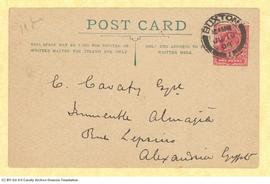 POST CARD
THIS SPACE MAY BE USED FOR
WRITTEN MATTER FOR INLAND USE ONLY
THE ADDRESS TO BE
WRITTEN HERE
BUXTON
C. Cavafy Esqr
Immeuble Almagià
Rue Lepsius
Alexandria Egypt
CC BY-SA 4.0 Cavafy Archive Onassis Foundation